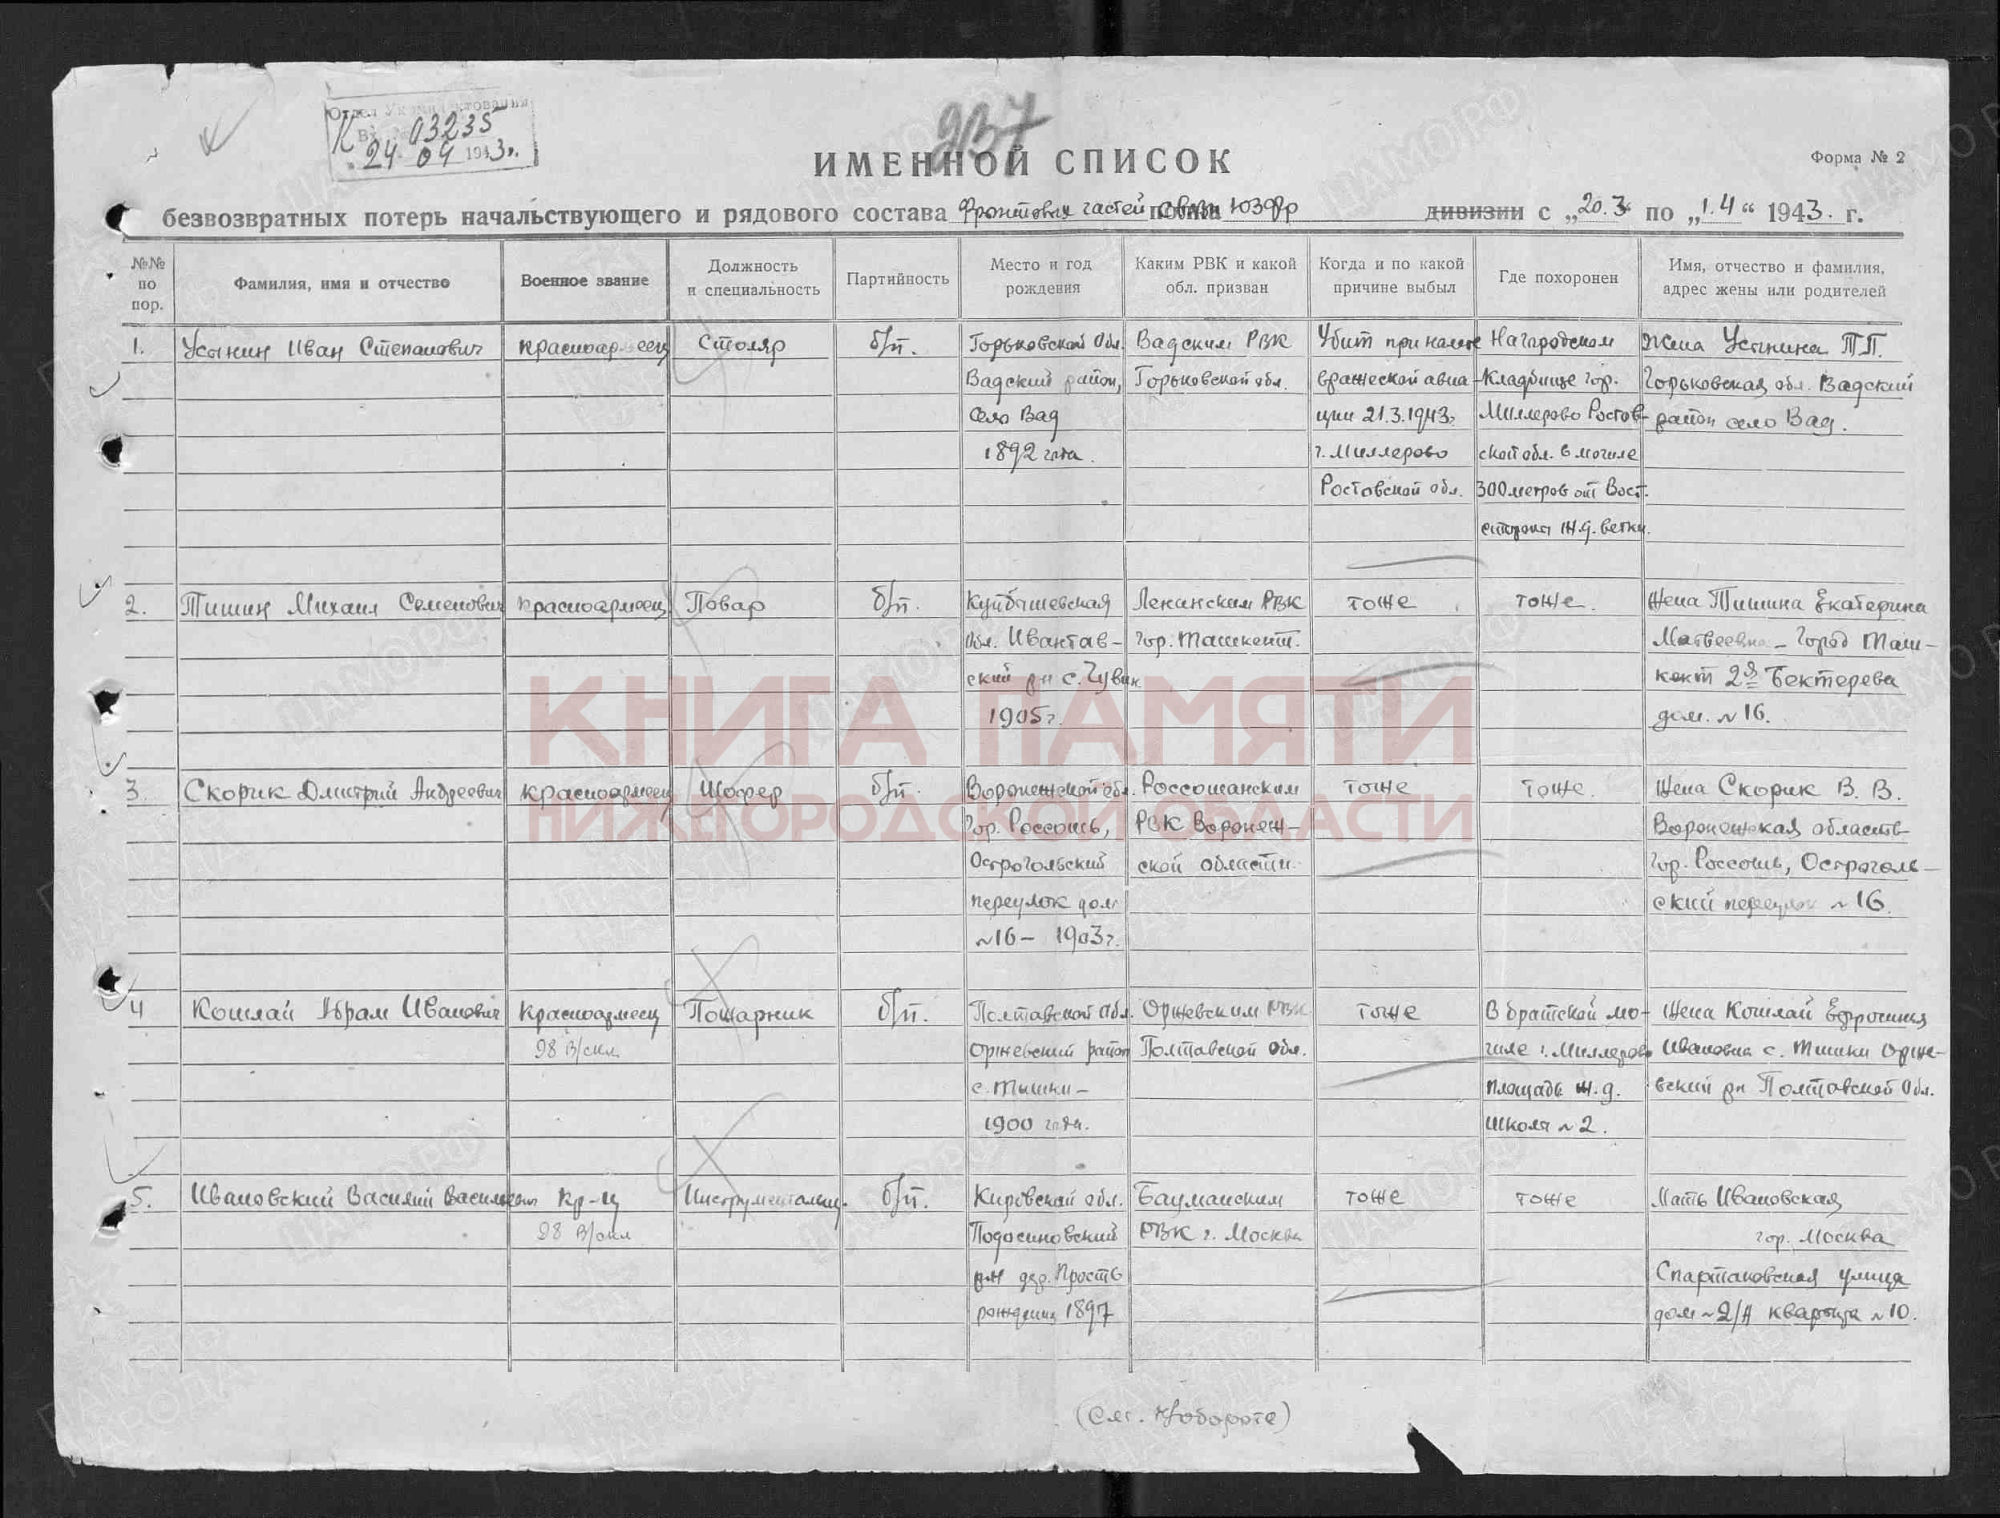 Отдел Укомплектования
К Вх. № 03235
24 04 1943г.
937
ИМЕННОЙ СПИСОК
Форма № 2
безвозвратных потерь начальствующего и рядового состава фронтовых частей связи ЮЗФр дивизии с „20.3“ по „1.4“ 1943. г.
№№ по пор.
Фамилия, имя и отчество
Военное звание
Должность и специальность
Партийность
Место и год рождения
Каким РВК и какой обл. призван
Когда и по какой причине выбыл
Где похоронен
Имя, отчество и фамилия, адрес жены или родителей
1. Усынин Иван Степанович красноармеец Столяр б/п. Горьковской Обл. Вадским РВК Убит при налете На городском Жена Усынина Т.П.
Вадский район, Горьковской обл. вражеской авиа- кладбище гор. Горьковская обл. Вадский
село Вад ции 21.3.1943г. Миллерово Ростов- район село Вад.
1892 года. г. Миллерово ской обл. в могиле
Ростовской обл. 300 метров от Вост.
стороны ж.д. ветки.
2. Тишин Михаил Семенович красноармеец Повар б/п. Куйбышевская Ленинским РВК тоже тоже. Жена Тишина Екатерина
Обл. Ивантав- гор. Ташкент. Матвеевна - Город Таш-
ский рн с. Чувик кент 2я Бектерева
1905г. дом. № 16.
3. Скорик Дмитрий Андреевич красноармеец Шофер б/п. Воронежской обл. Россошанским тоже тоже. Жена Скорик В. В.
гор. Россошь, РВК Воронеж- Воронежская область
Острогольский ской области. гор. Россошь, Острого­ль-
переулок дом ский переулок № 16.
№16 - 1903г.
4 Кошлай Абрам Иванович Красноармеец Пожарник б/п. Полтавской Обл. Оржевским РВК тоже В братской мо- Жена Кошлай Ефросиния
98 в/скл Оржевский район Полтавской обл. гиле г. Миллерово Ивановна с. Тишки Орже-
с. Тышки - площадь ж.д. вский рн Полтавской Обл.
1900 года. школа №2.
5. Ивановский Василий Васильевич кр-ц Инструментальщ. б/п. Кировской обл. Бауманским тоже тоже Мать Ивановская
98 в/скл Подосиновский РВК г. Москва гор. Москва
рн дер. Прость Спартаковская улица
рождения 1897 дом №2/А квартира №10.
(См. на обороте)
КНИГА ПАМЯТИ
НИЖЕГОРОДСКОЙ ОБЛАСТИ